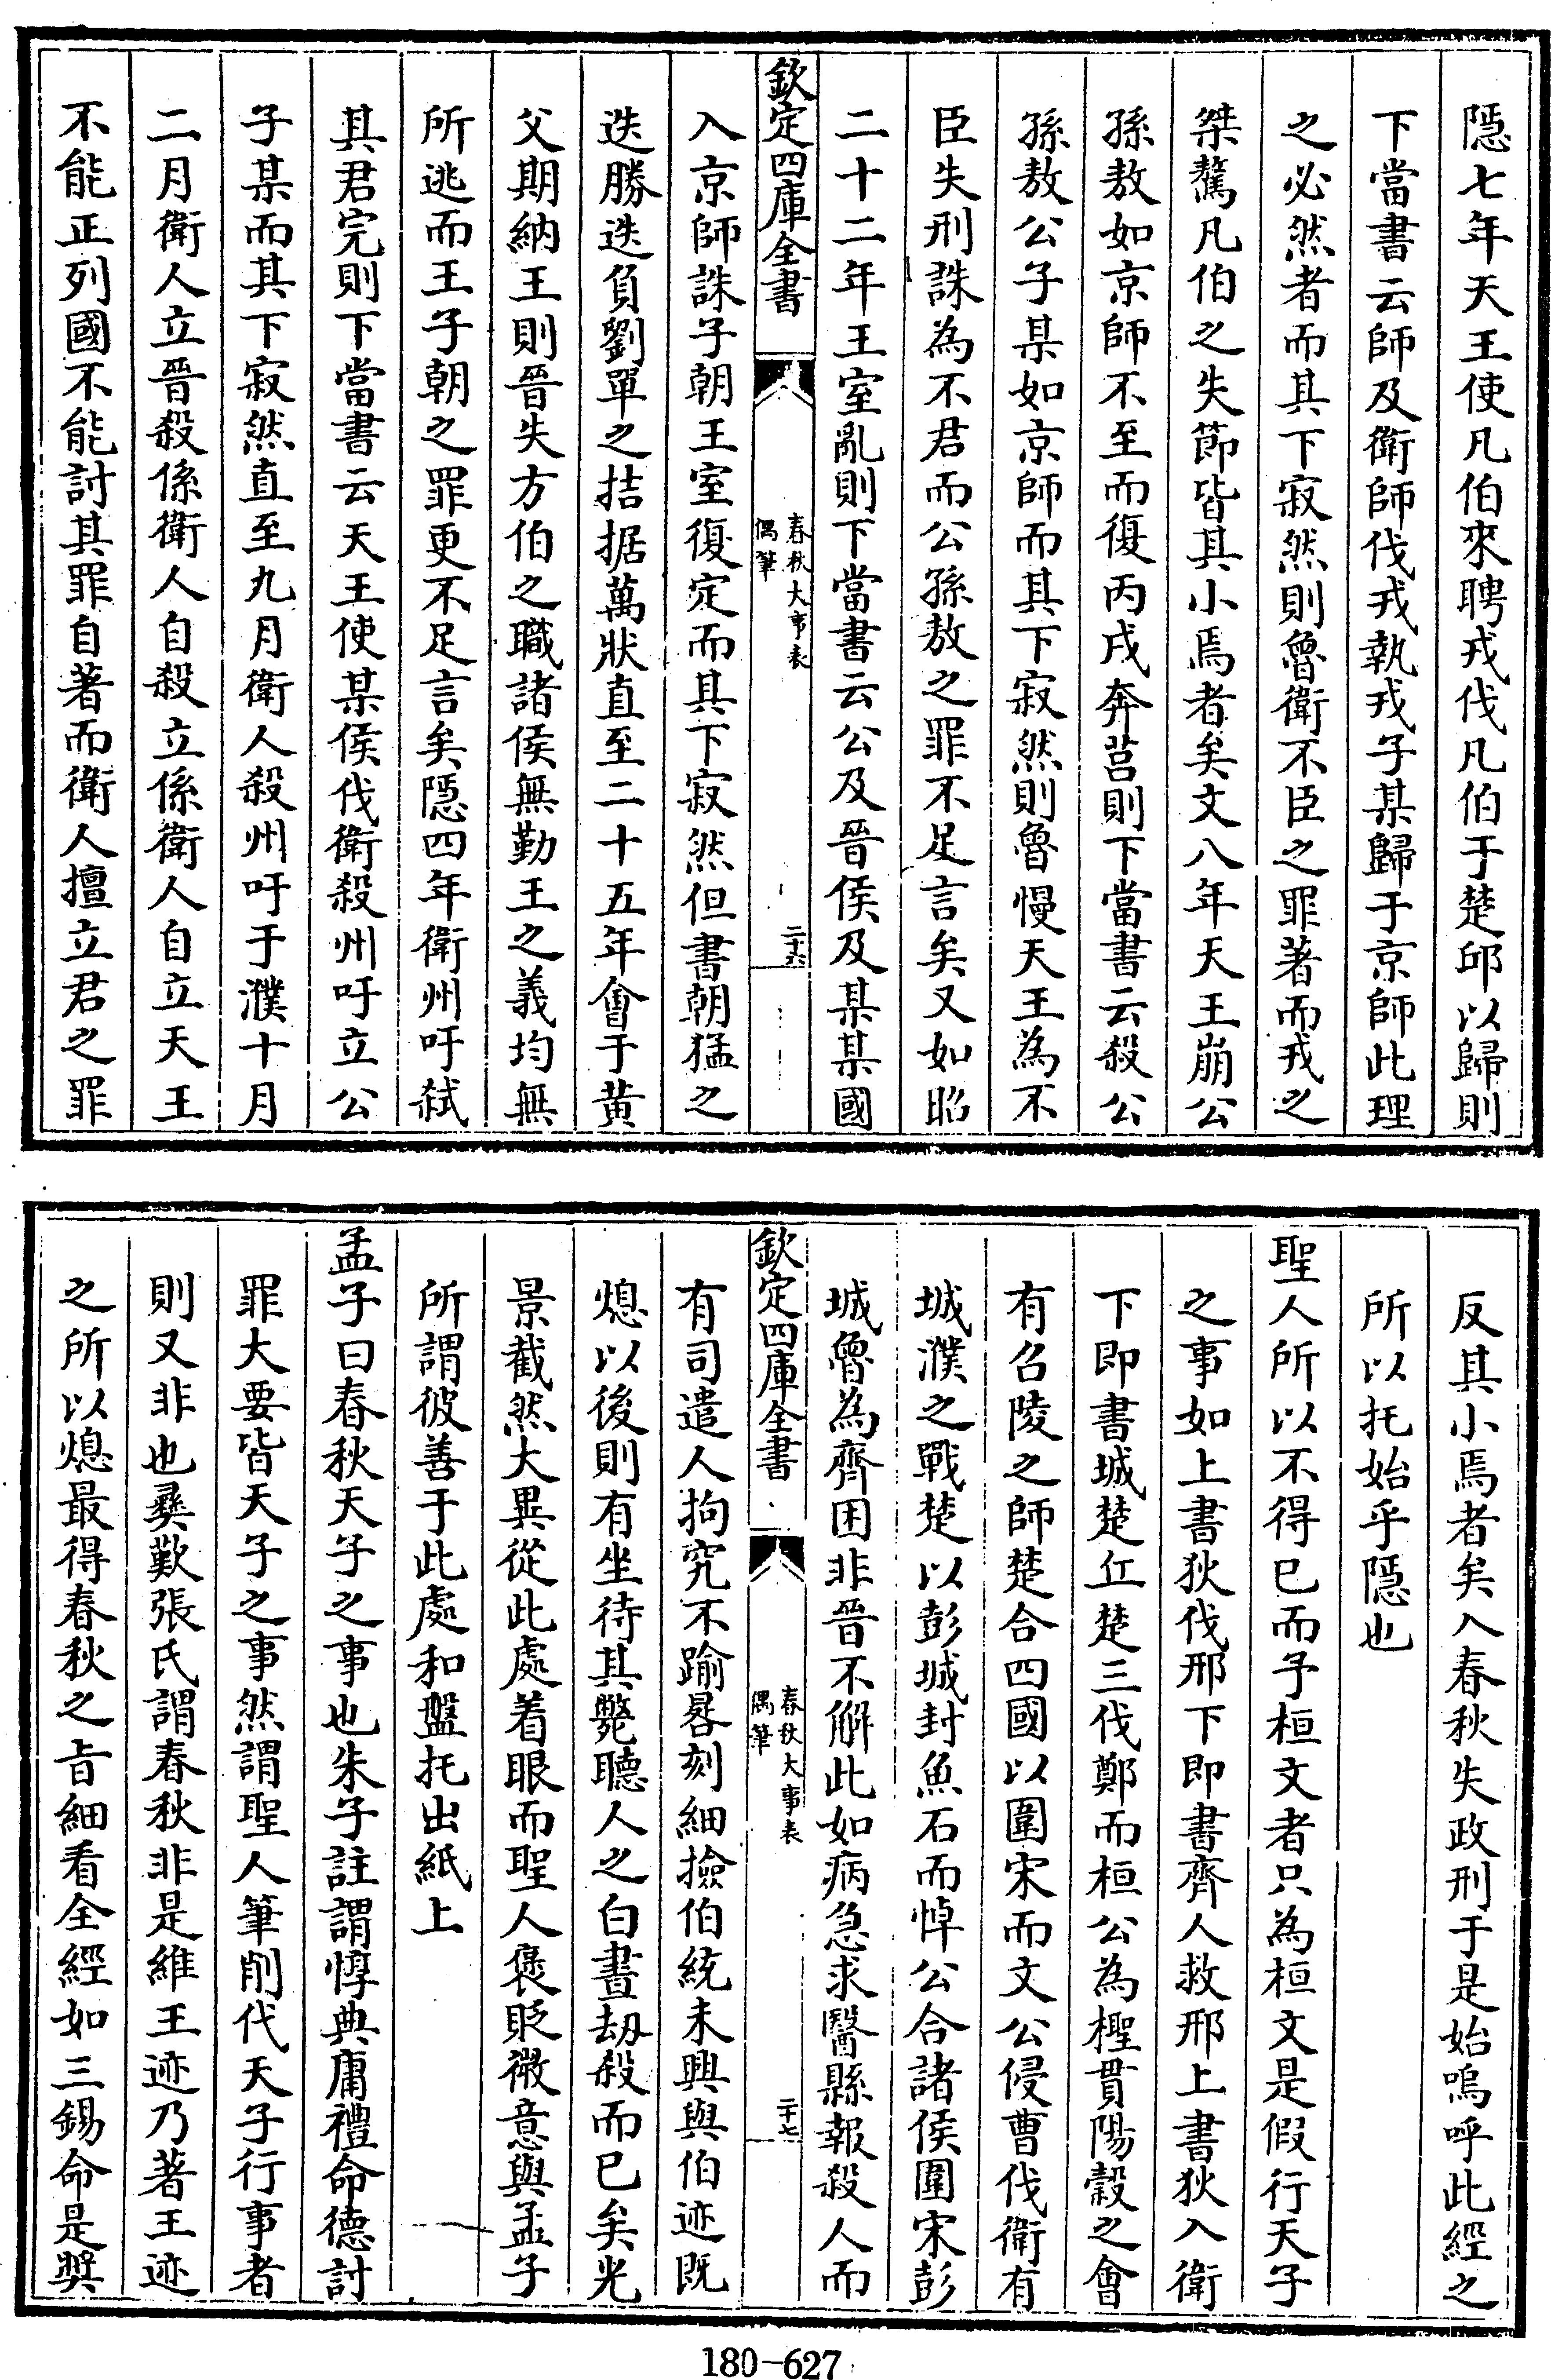 隱七年天王使凡伯來聘戎伐凡伯于楚邱以歸則
下當書云師及衛師伐戎執戎子某歸于京師此理
之必然者而其下寂然則魯衛不臣之罪著而戎之
桀驁凡伯之失節皆其小焉者矣文八年天王崩公
孫敖如京師不至而復丙戌奔莒則下當書云殺公
孫敖公子某如京師而其下寂然則魯慢天王為不
臣失刑誅為不君而公孫敖之罪不足言矣又如昭
二十二年王室亂則下當書云公及晉侯及某某國
欽定四庫全書
春秋大事表
偶筆
二十六
入京師誅子朝王室復定而其下寂然但書朝猛之
迭勝迭負劉單之拮据萬狀直至二十五年會于黄
父期納王則晉失方伯之職諸侯無勤王之義均無
所逃而王子朝之罪更不足言矣隱四年衛州吁弑
其君完則下當書云天王使某侯伐衛殺州吁立公
子某而其下寂然直至九月衛人殺州吁于濮十月
二月衛人立晉殺係衛人自殺立係衛人自立天王
不能正列國不能討其罪自著而衛人擅立君之罪
反其小焉者矣入春秋失政刑于是始嗚呼此經之
所以托始乎隱也
聖人所以不得已而予桓文者只為桓文是假行天子
之事如上書狄伐邢下即書齊人救邢上書狄入衛
下即書城楚丘楚三伐鄭而桓公為檉貫陽榖之會
有召陵之師楚合四國以圍宋而文公侵曹伐衛有
城濮之戰楚以彭城封魚石而悼公合諸侯圍宋彭
城魯為齊困非晉不解此如病急求醫縣報殺人而
欽定四庫全書
春秋大事表
偶筆
二十七
有司遣人拘究不踰晷刻細撿伯統未興與伯迹既
熄以後則有坐待其斃聽人之白晝刼殺而已矣光
景截然大異從此處着眼而聖人褒貶微意與孟子
所謂彼善于此處和盤托出紙上
孟子曰春秋天子之事也朱子註謂惇典庸禮命德討
罪大要皆天子之事然謂聖人筆削代天子行事者
則又非也彛歎張氏謂春秋非是維王迹乃著王迹
之所以熄最得春秋之旨細看全經如三錫命是奬
180-627